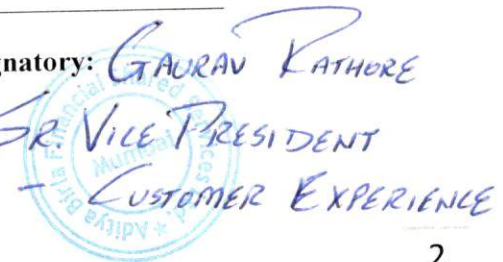 gnatory: GAURAV RATHORE
SR. VICE PRESIDENT
- CUSTOMER EXPERIENCE
Aditya Birla Financial Shared Services Ltd. *
Mumbai
2